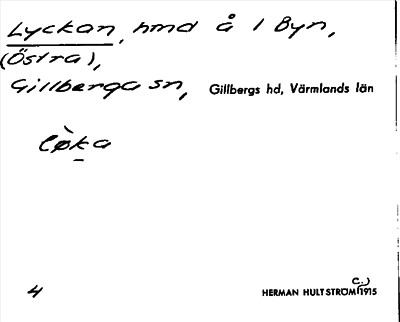 Lyckan, hmd å 1 Byn,
(Östra),
Gillberga sn, Gillbergs hd, Värmlands län
lø̀ka
4
HERMAN HULTSTRÖM (c.) 1915